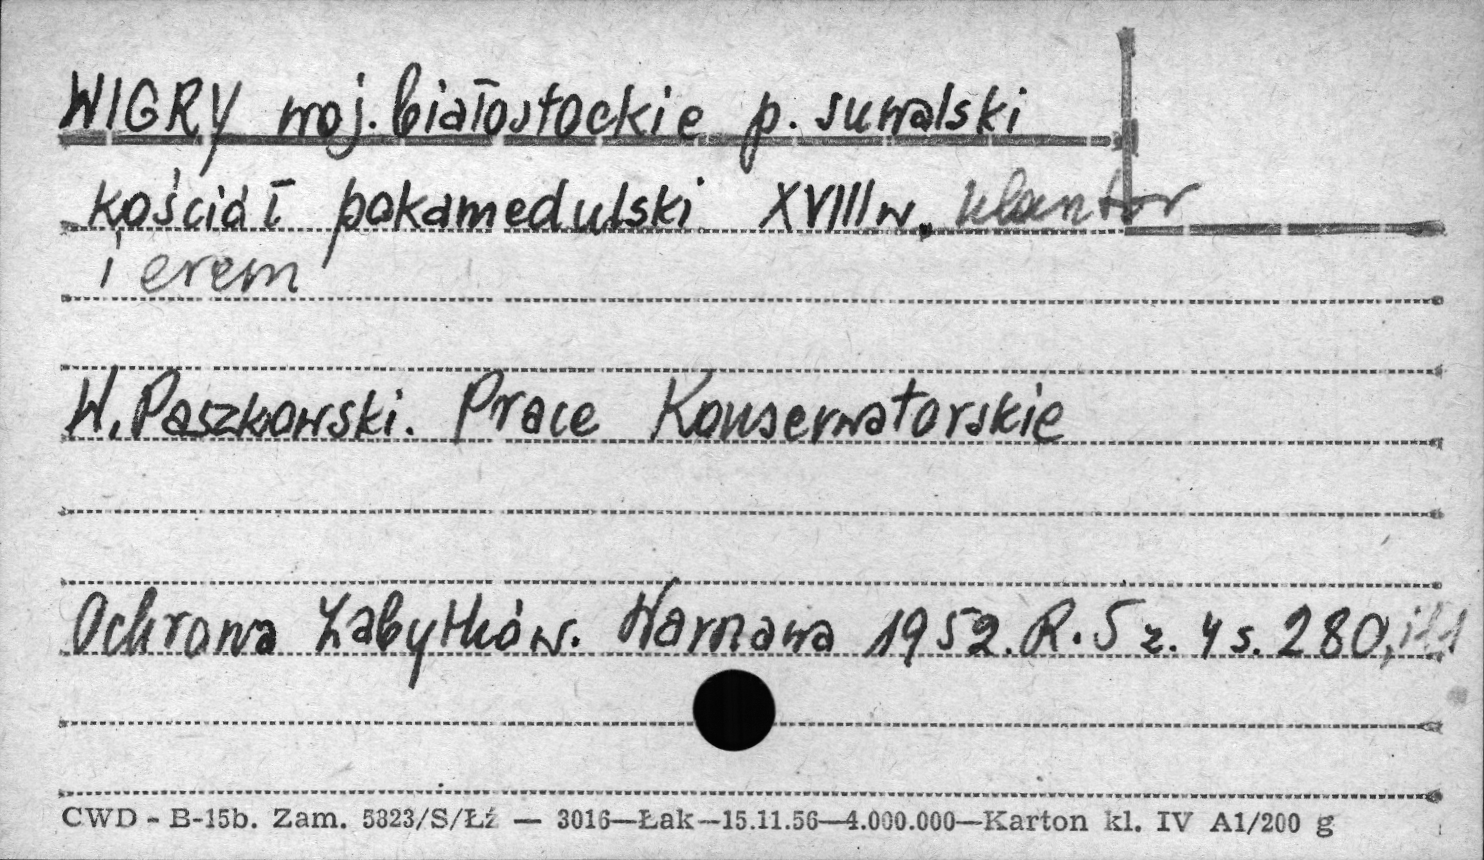 WIGRY woj. białostockie p. suwalski
kościół pokamedulski XVIII w. klasztor
i erem
W. Paszkowski. Prace Konserwatorskie
Ochrona Zabytków. Warszawa 1952. R. 5 z. 4 s. 280, il 1
CWD - B-15b. Zam. 5323/S/Łź — 3016—Łak—15.11.56—4.000.000—Karton kl. IV A1/200 g